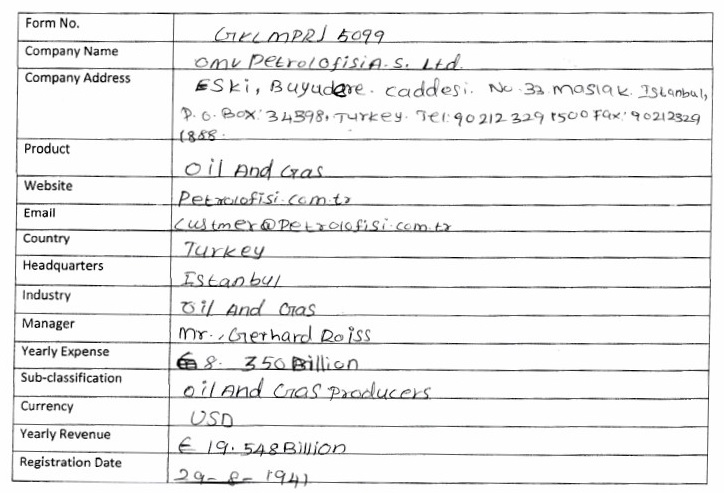 Form No. GKLMPRJ 5099
Company Name OMV PetrolofisiA.S. Ltd.
Company Address ESki, Buyudere. Caddesi. No. 33 maslak. Istanbul,
P.O. Box: 34398, Turkey. Tel: 90 212 329 1500 Fax: 90212329
1888.
Product Oil And Gas
Website Petrolofisi.com.tr
Email Custmer@Petrolofisi.com.tr
Country Turkey
Headquarters Istanbul
Industry Oil And Gas
Manager Mr., Gerhard Roiss
Yearly Expense € 8. 350 Billion
Sub-classification Oil And Gas Producers
Currency USD
Yearly Revenue € 19.548 Billion
Registration Date 29-8-1941